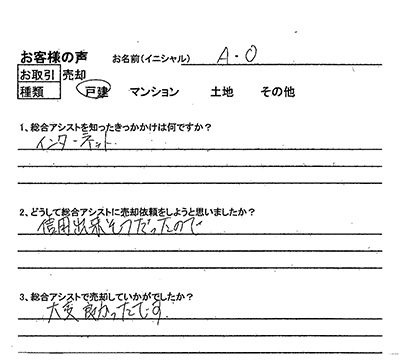 お客様の声 お名前(イニシャル) A・O
お取引 売却
種類 戸建 マンション 土地 その他
1、総合アシストを知ったきっかけは何ですか?
インターネット
2、どうして総合アシストに売却依頼をしようと思いましたか?
信用出来そうだったので
3、総合アシストで売却していかがでしたか?
大変良かったです。